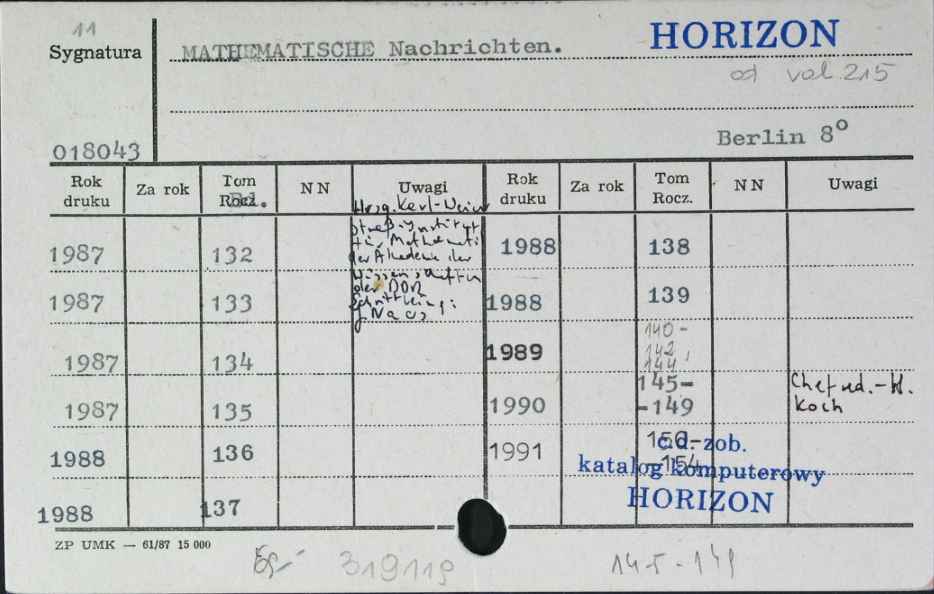 11
Sygnatura
MATHEMATISCHE Nachrichten.
HORIZON
od vol. 215
018043
Berlin 8°
Rok druku Za rok Tom Rocz. Bd. NN Uwagi Rok druku Za rok Tom Rocz. NN Uwagi
Hrsg. Karl-Weier
straß-Institut
für Mathemati
der Akademie der
Wissenschaften
der DDR
Schriftleitg:
J. Naas
1987 132 1988 138
1987 133 1988 139
1987 134 1989 140-
142,
144,
1987 135 1990 145-
-149
Chefred.-H.
Koch
1988 136 1991 150-
154
1988 137
c.d. zob.
katalog komputerowy
HORIZON
ZP UMK — 61/87 15 000
319119
145-149